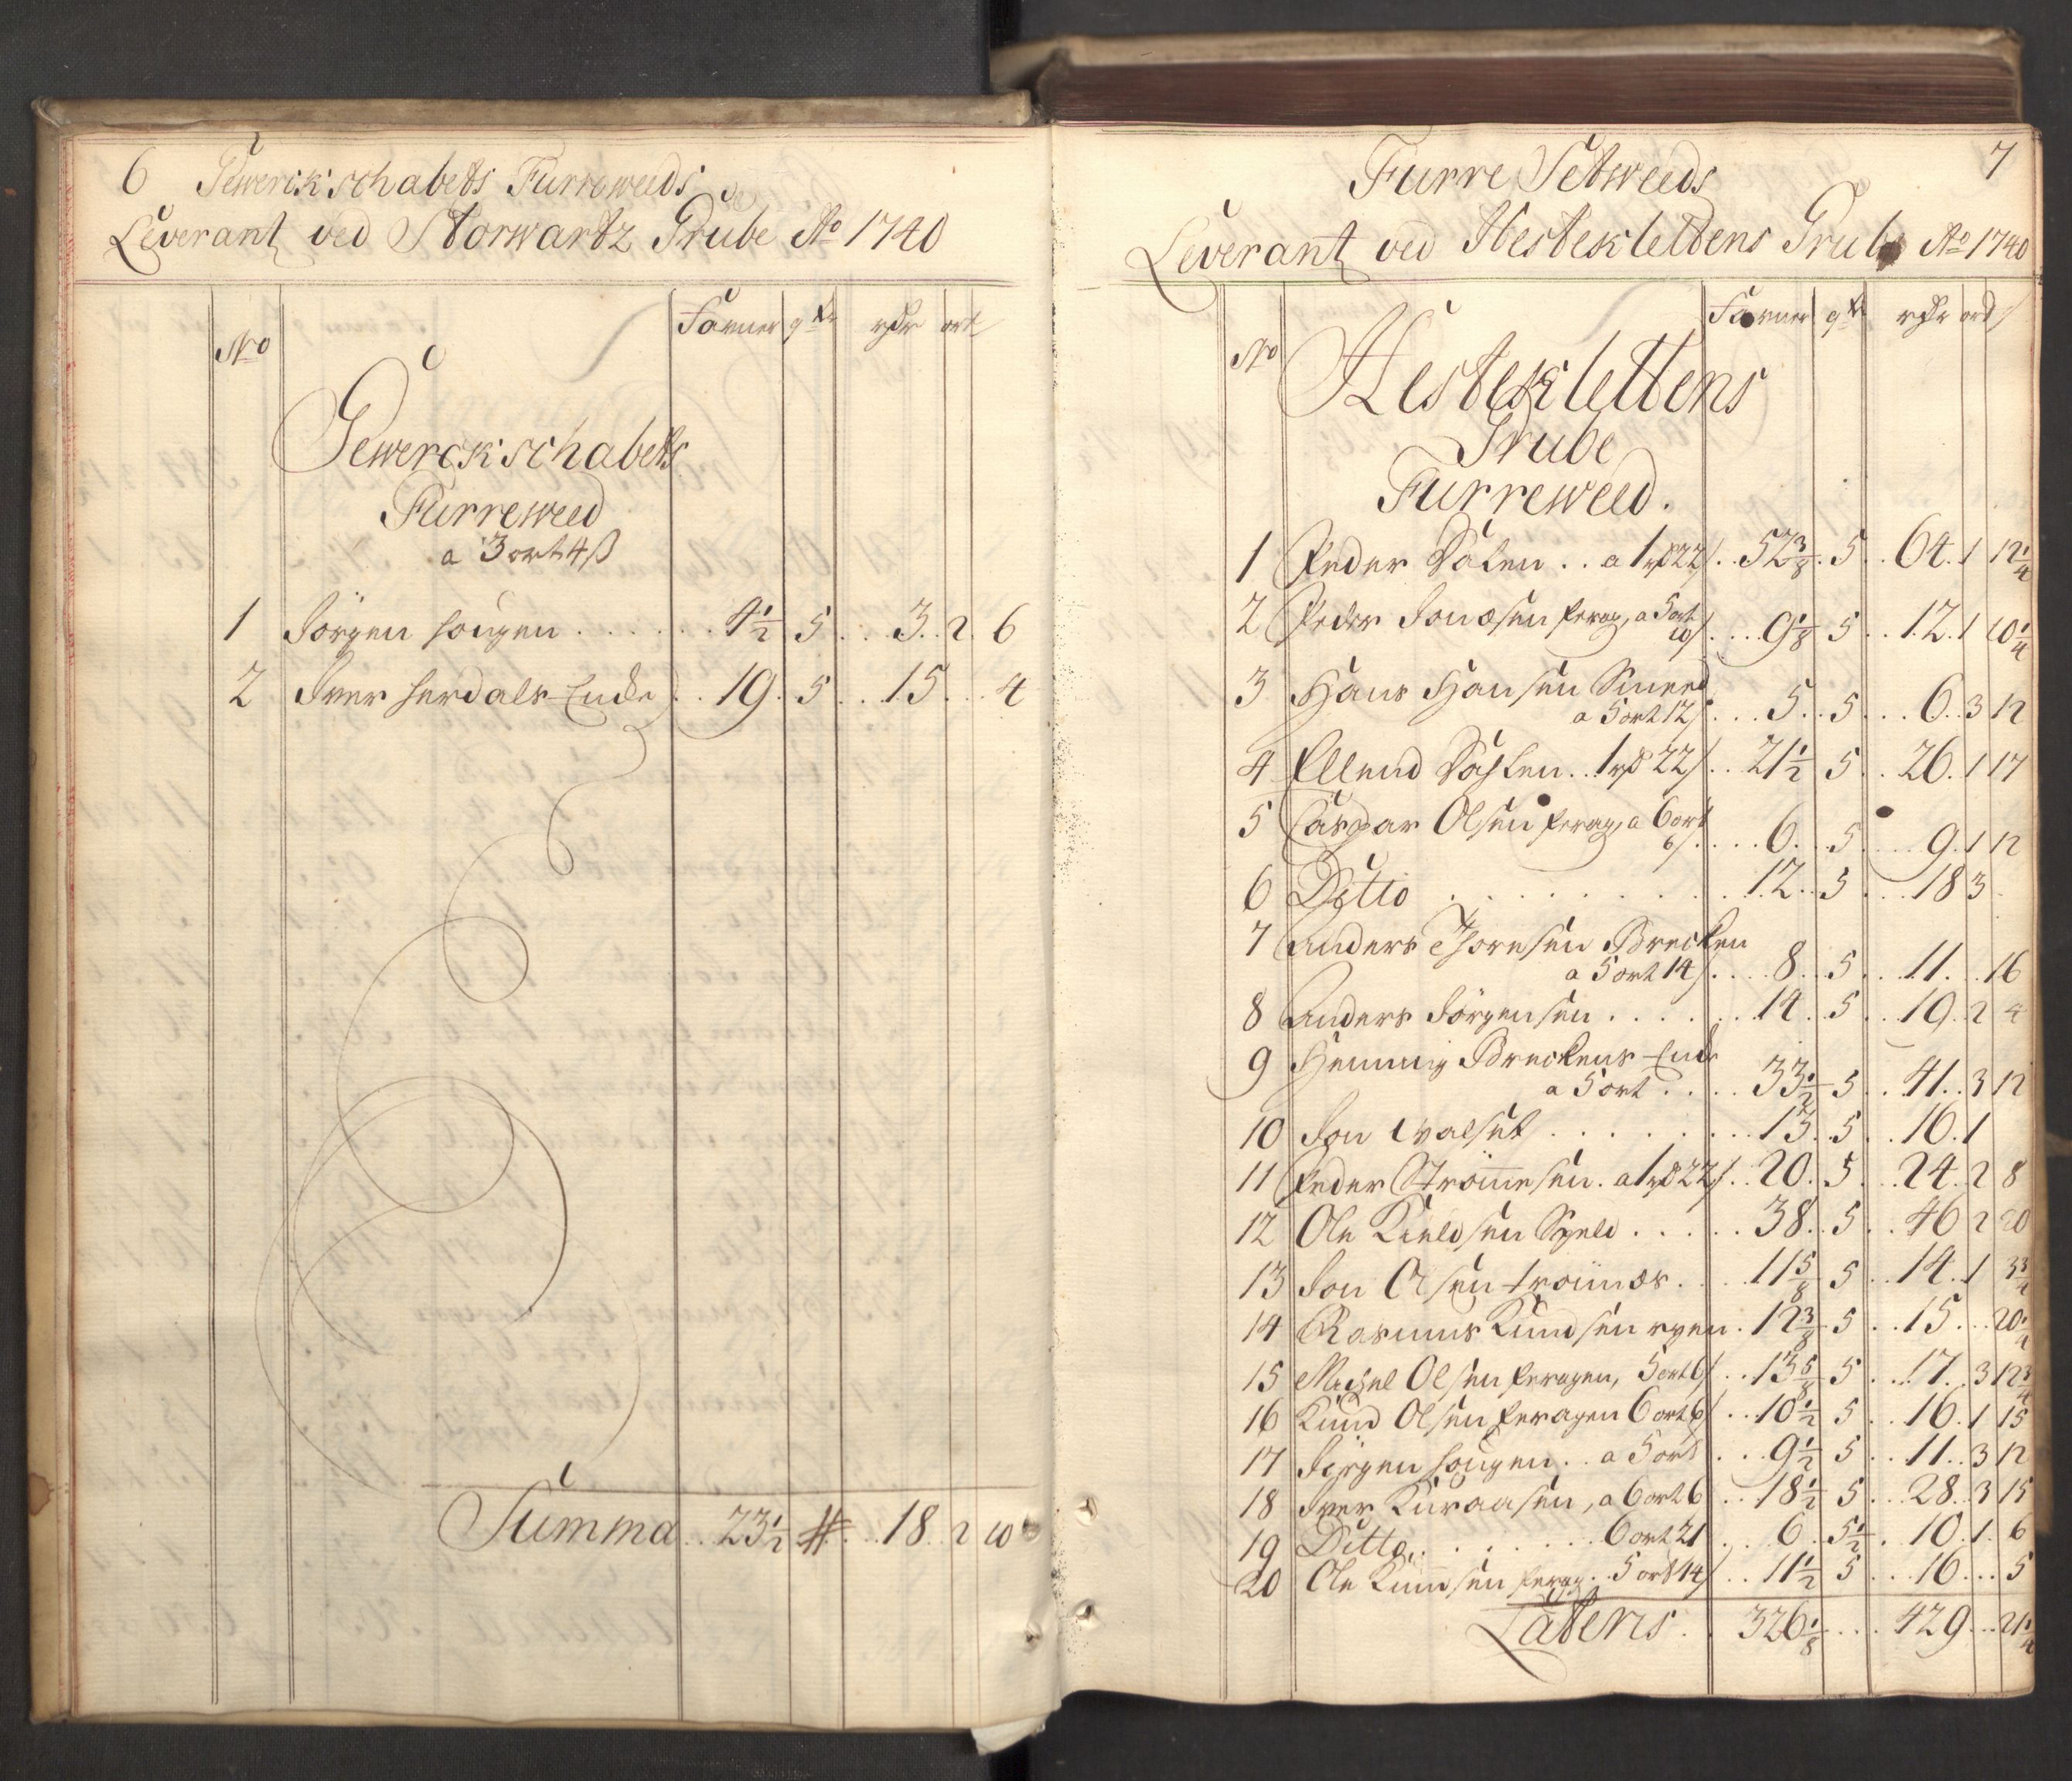 6 Gewerckschabets Furreweeds
Leverant ved Storwartz Grube Ao 1740
No Favner qtr rdr ort
Gewerckschabets
Furreweed
a 3 ort 4 ß
1 Jörgen hougen 4 1/2 5 3 2 6
2 Iver herdals Encke 19 5 15 4
Summa 23 1/2 # 18 2 10
7
Furre Setweeds
Leverant ved Hesteklettens Grube Ao 1740
No Favner qtr rdr ord
Hesteklettens
Grube
Furreweed.
1 Peder a 1 rd 22 ß 52 3/8 5 64 1 12 1/4
2 Peder Jonæsen ferag, a 5 ort
10 ß 9 1/8 5 12 1 10 1/4
3 Hans Hansen Smeed
a 5 ort 12 ß 5 5 6 3 12
4 Ellend 1 rd 22 ß 21 1/2 5 26 1 17
5 Caspar Olsen ferag, a 6 ort
6 ß 6 5 9 1 12
6 Ditto 12 5 18 3
7 Anders Thoresen Brecken
a 5 ort 14 ß 8 5 11 16
8 Anders Jörgensen 14 5 19 2 4
9 Henning Breckens Encke
a 5 ort 33 1/2 5 41 3 12
10 Jon Evalset 13 5 16 1
11 Peder Strömesen a 1 rd 22 ß 20 5 24 2 8
12 Ole Kieldsen Sgeld 38 5 46 2 20
13 Jon Olsen tronnæs 11 5/8 5 14 1 3 3/4
14 Rasmus Knudsen ryen 12 3/8 5 15 20 1/4
15 Michel Olsen feragen, 5 ort 6 ß 13 5/8 5 17 3 12 3/4
16 Knud Olsen feragen 6 ort 6 ß 10 1/2 5 16 1 15
17 Jörgen hougen a 5 ort 9 1/2 5 11 3 12
18 Iver Kuraasen, a 6 ort 6 18 1/2 5 28 3 15
19 Ditto 6 ort 21 6 5 1/2 10 1 6
20 Ole Knudsen ferag. 5 ort 14 ß 11 1/2 5 16 5
Latens 326 1/8 429 21 1/4